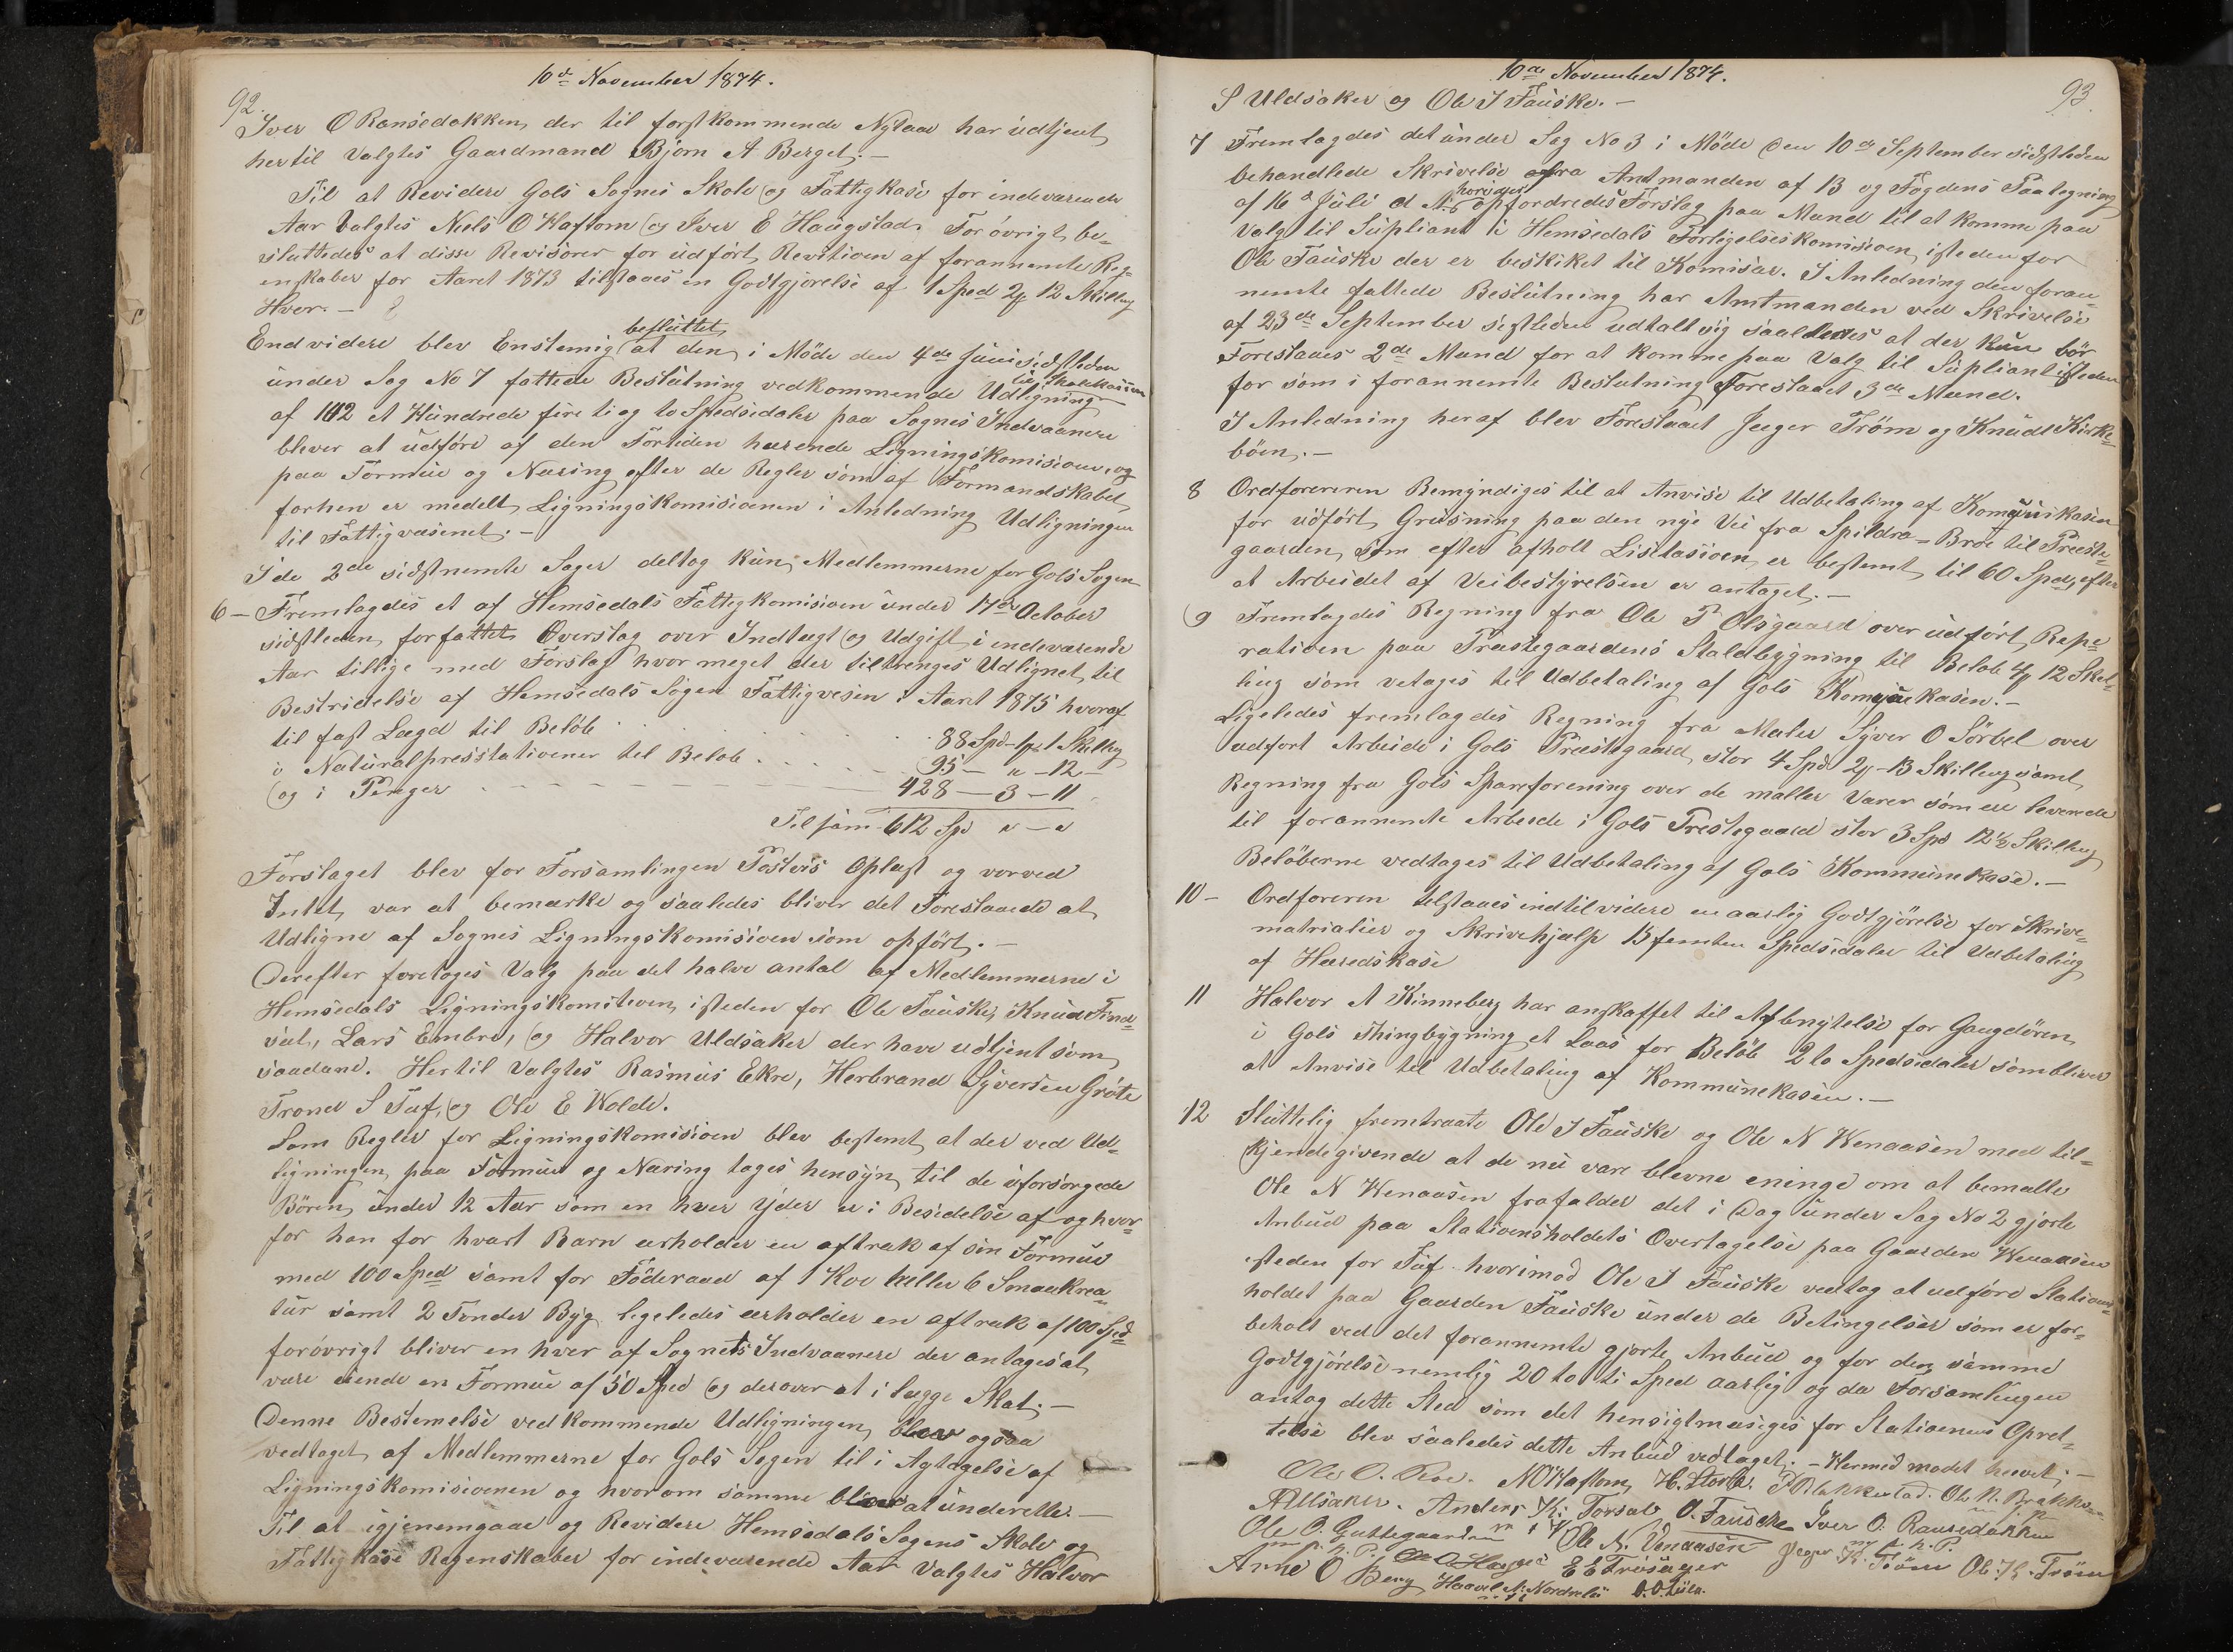 10de November 1874.
92.
Iver O Ransedokken, der til førstkommende Nytaar har udtjent
hertil Valgtes Gaardmand Bjørn A Berget. —
Til at Revidere Gols Sognes Skole og Fattigkase for indeværende
Aar Valgtes Niels O Haftorn og Iver E Haugstad. For øvrigt be-
sluttedes at disse Revisorer for udført Revition af forannemte Reg-
enskaber for Aaret 1873 tilstaaes en Godtgjørelse af 1 Spd 2 12 Skilling
Hver. —
Endvidere blev Enstemig besluttet at den i Møde den 4de Juni sidstleden
under Sag No 7 fattede Beslutning vedkommende Udligning til Skolekassen
af 142 et Hundrede fire ti og to Spedsidaler paa Sognes Indvaanere
blever at udføre af den Fortiden hærende Ligningskomision, og
paa Formue og Næring efter de Regler som af Formandskabet
forhen er medelt Ligningskomisionen i Anledning Udligningen
til Fattigvæsenet. —
I de 2de sidstnemte Sager deltog kun Medlemmerne for Gols Sogen
6 — Fremlagdes et af Hemsedals Fattigkomision under 17de October
sidstleden forfattet Overslag over Indtægt og Udgift i indeværende
Aar tillige med Forslag hvor meget der tiltrenges Udlignet til
Bestridelse af Hemsedals Sogen Fattigvesen i Aaret 1875 hvoraf
til fast Lægd til Beløb . . . . . 88 Spd - 1 Skilling
i Naturalpresstationer til Beløb . . . . . 95 — " — 12 —
og i Penger — — — — — 428 — 3 — 11
Tilsam 612 Spd " — "
Forslaget blev for Forsamlingen Postvis Oplæst og vorved
Intet var at bemærke og saaledes bliver det Foreslaaede at
Udligne af Sognes Ligningskomision som opført. —
Derefter foretoges Valg paa det halve antal af Medlemmerne i
Hemsedals Ligningskomiteven, isteden for Ole Fauske, Knud Find-
set, Lars Embre, og Halvor Uldsaker der have udtjent som
saadane. Hertil Valgtes Rasmus Ekre, Herbrand Syversen Grøte
Trond S Tuf, og Ole E Kolde.
Som Regler for Ligningskomision blev bestemt at der ved Ud-
ligningen paa Formue og Næring tages hensyn til de uforsørgede
Børen under 12 Aar som en hver yder er i Besidelse af og hvor-
for han for hvart Barn erholder en aftrak af sin Formue
med 100 Sped samt for Føderaad af 1 Koe heller 6 Smaakrea-
tur samt 2 Tønder Byg ligeledes erholder en aftrak af 100 Sped
forøvrigt bliver en hver af Sognets Indvaanere der antages at
være eiende en Formue af 50 Sped og derover at i lægge Skat. —
Denne Bestemelse vedkommende Udligningen, blev ogsaa
vedtaget af Medlemmerne for Gols Sogen til i Agtagelse af
Ligningskomisionen og hvorom samme bliver at underette. —
Til at igjenemgaae og Revidere Hemsedals Sogens Skole og
Fattigkase Regenskaber for indeværende Aar Valgtes Halvor
10de November 1874.
93.
S Uldsaker og Ole I Fauske. —
7 Fremlagdes det under Sag No 3 i Møde den 10de September sidstleden
behandlede Skrivelse fra Amtmanden af B og Fogdens Paategning
af 16de Juli d A hvorved opfordredes Forslag paa Mand til at komme paa
Valg til Supliant i Hemsedals Forligelseskomision, isteden for
Ole Fauske der er beskiket til Komisar. I Anledning den foran-
nemte fattede Beslutning har Amtmanden ved Skrivelse
af 23de September sistleden udtalt sig saaledes at der kun bør
Foreslaaes 2de Mand for at komme paa Valg til Supliant isteden
for som i forannemte Beslutning Foreslaaet 3de Mand.
I Anledning heraf blev Foreslaaet Jeger Trøm og Knud Kirke-
bøen. —
8 Ordføreren Bemyndiges til at Anvise til Udbetaling af Komunikasen
for udført Grusning paa den nye Vei fra Spildra-Broe til Præste-
gaarden, som efter afholt Lisitasioen er bestemt til 60 Spd, efter
at Arbeidet af Veibestyrelsen er antaget. —
9 Fremlagdes Regning fra Ole P Olsgaard over udført Repe-
rationen paa Præstegaardens Staldbygning til Beløb 4 12 Skil-
ling som vetages til Udbetaling af Gols Komunekasen. —
Ligeledes fremlagdes Regning fra Maler Syver O Sørbel over
udført Arbeide i Gols Præstegaard, stor 4 Spd 2 - 13 Skilling samt
Regning fra Gols Spareforening over de maller Varer som ere leverede
til forannemte Arbeide i Gols Prestegaard stor 3 Spd 12½ Skilling
Beløberne vedtages til Udbetaling af Gols Kommunekase. —
10 — Ordføreren tilstaaes indtil videre en aarlig Godtgjørelse for Skrive-
matrialier og Skrivehjælp 15 femten Spedsidaler til Udbetaling
af Heredskase
11 Halvor A Kinneberg har anskaffet til Afbenytelse for Gangdøren
i Gols Thingbygning et Laas for Beløb 2 to Spedsidaler som bliver
at Anvise til Udbetaling af Kommunekasen. —
12 Sluttelig fremtraate Ole I Fauske og Ole N Wenaasen med til-
kjendegivende at de nu vare blevne eninge om at bemelte
Ole N Wenaasen frafalder det i Dag under Sag No 2 gjorte
Anbud paa Stationsholdets Overtagelse paa Gaarden Wenaasen
isteden for Tuf hvorimod Ole I Fauske vedtog at udføre Stations-
holdet paa Gaarden Fauske under de Betingelser som er for-
beholt ved det forannemte gjorte Anbud og for den samme
Godtgjørelse nemlig 20 to ti Sped aarlig og da Forsamlingen
antog dette Sted som det hensigtmæsiges for Stationens Opret-
telse blev saaledes dette Anbud vedtaget. — Hermed mødet hævet. —
Ole O. Roe. N O Haftorn H. Storle. Ole N. Brakke
A Ulsaker. Anders K. Torsal O. Fauske Iver O. Ransedokken
Ole O. Guttegaarden Ole N. Venaasen Jeger K. Trøm Ole K. Trøm
Arne O Berg E E Trøsager